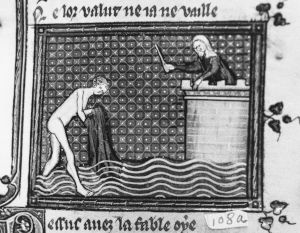 e lor valut ne ia ne vaille
essus auez la fable oye
108a